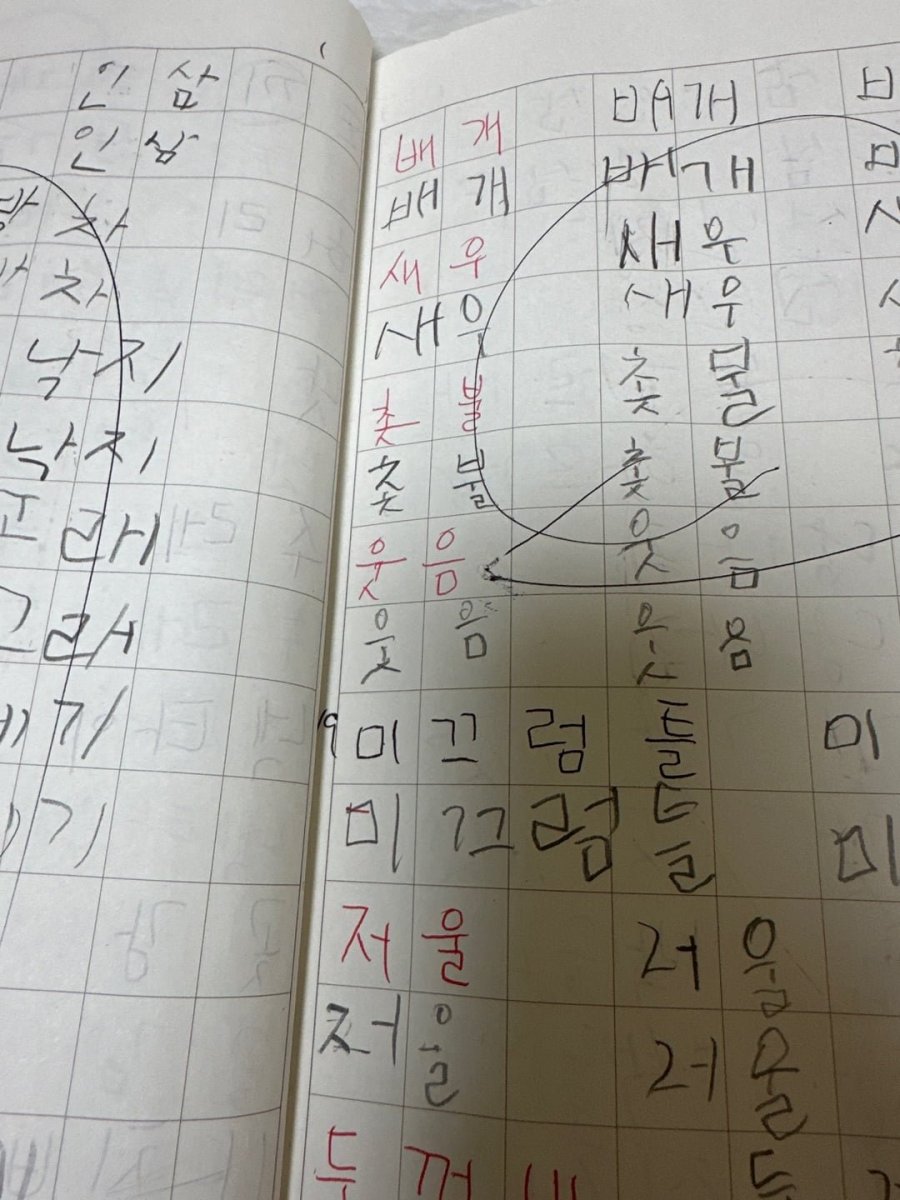 인 삼
인 삼
차
차
낙 지
낙 지
고 래
고 래
기
기
배 개 배 개
배 개 배 개
새 우 새 우
새 우 새 우
촛 불 촛 불
촛 불 촛 불
웃 음 웃 음
웃 음 웃 음
19 미 끄 럼 틀 미
미 끄 럼 틀 미
저 울 저 울
저 울 저 울
두 꺼 비